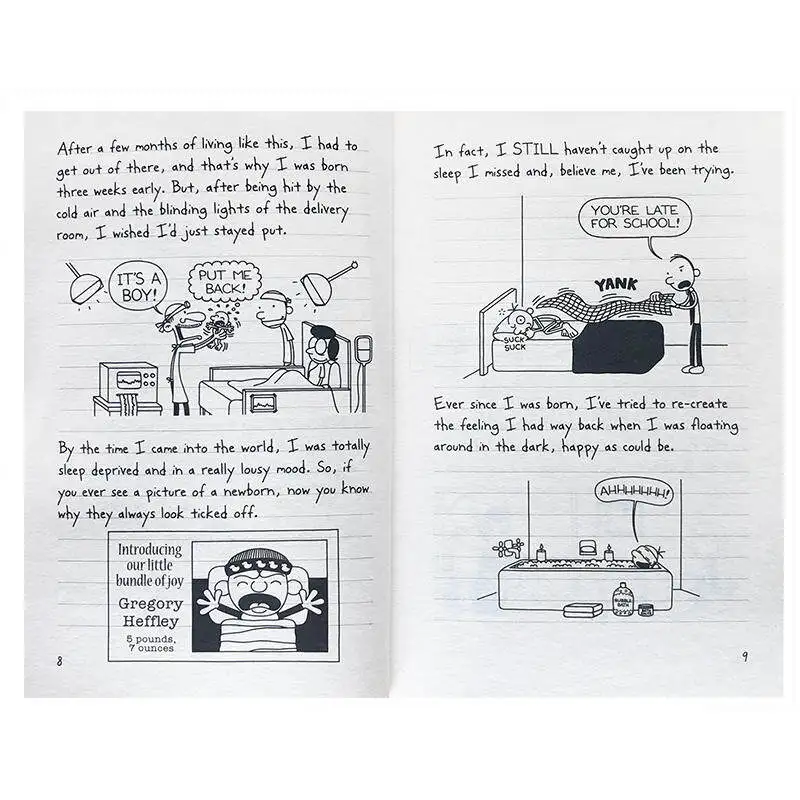 After a few months of living like this, I had to
get out of there, and that's why I was born
three weeks early. But, after being hit by the
cold air and the blinding lights of the delivery
room, I wished I'd just stayed put.
IT'S A
BOY!
PUT ME
BACK!
By the time I came into the world, I was totally
sleep deprived and in a really lousy mood. So, if
you ever see a picture of a newborn, now you know
why they always look ticked off.
Introducing
our little
bundle of joy
Gregory
Heffley
5 pounds,
7 ounces
8
In fact, I STILL haven't caught up on the
sleep I missed and, believe me, I've been trying.
YOU'RE LATE
FOR SCHOOL!
YANK
SUCK
SUCK
Ever since I was born, I've tried to re-create
the feeling I had way back when I was floating
around in the dark, happy as could be.
AHHHHHHH!
BUBBLE
BATH
9